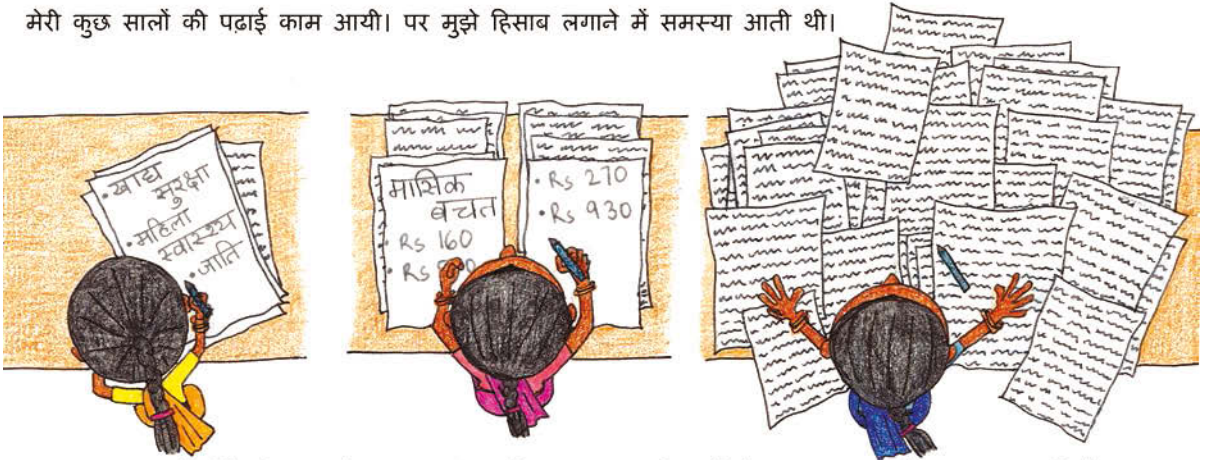 मेरी कुछ सालों की पढ़ाई काम आयी। पर मुझे हिसाब लगाने में समस्या आती थी।
• खाद्य
सुरक्षा
• महिला
स्वास्थ्य
• जाति
मासिक
बचत
• Rs 160
• Rs
• Rs 270
• Rs 930